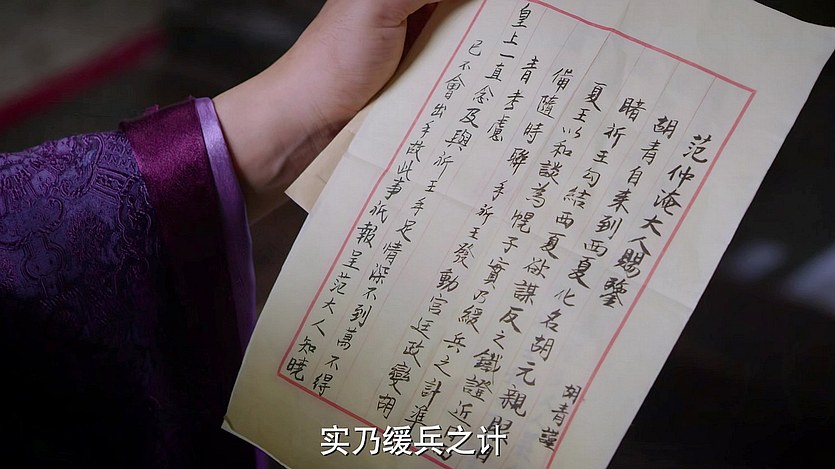 范仲淹大人賜鑒
胡青自来到西夏化名胡元親聞目
睹祈王勾结西夏欲謀反之鐵證近
夏王以和談為幌子實乃緩兵之計準
備隨時聯手祈王發動宮廷政變胡
青考慮
皇上一直念及與祈王手足情深不到萬不得
已不會出手故此事祇報呈范大人知曉
胡青謹
实乃缓兵之计